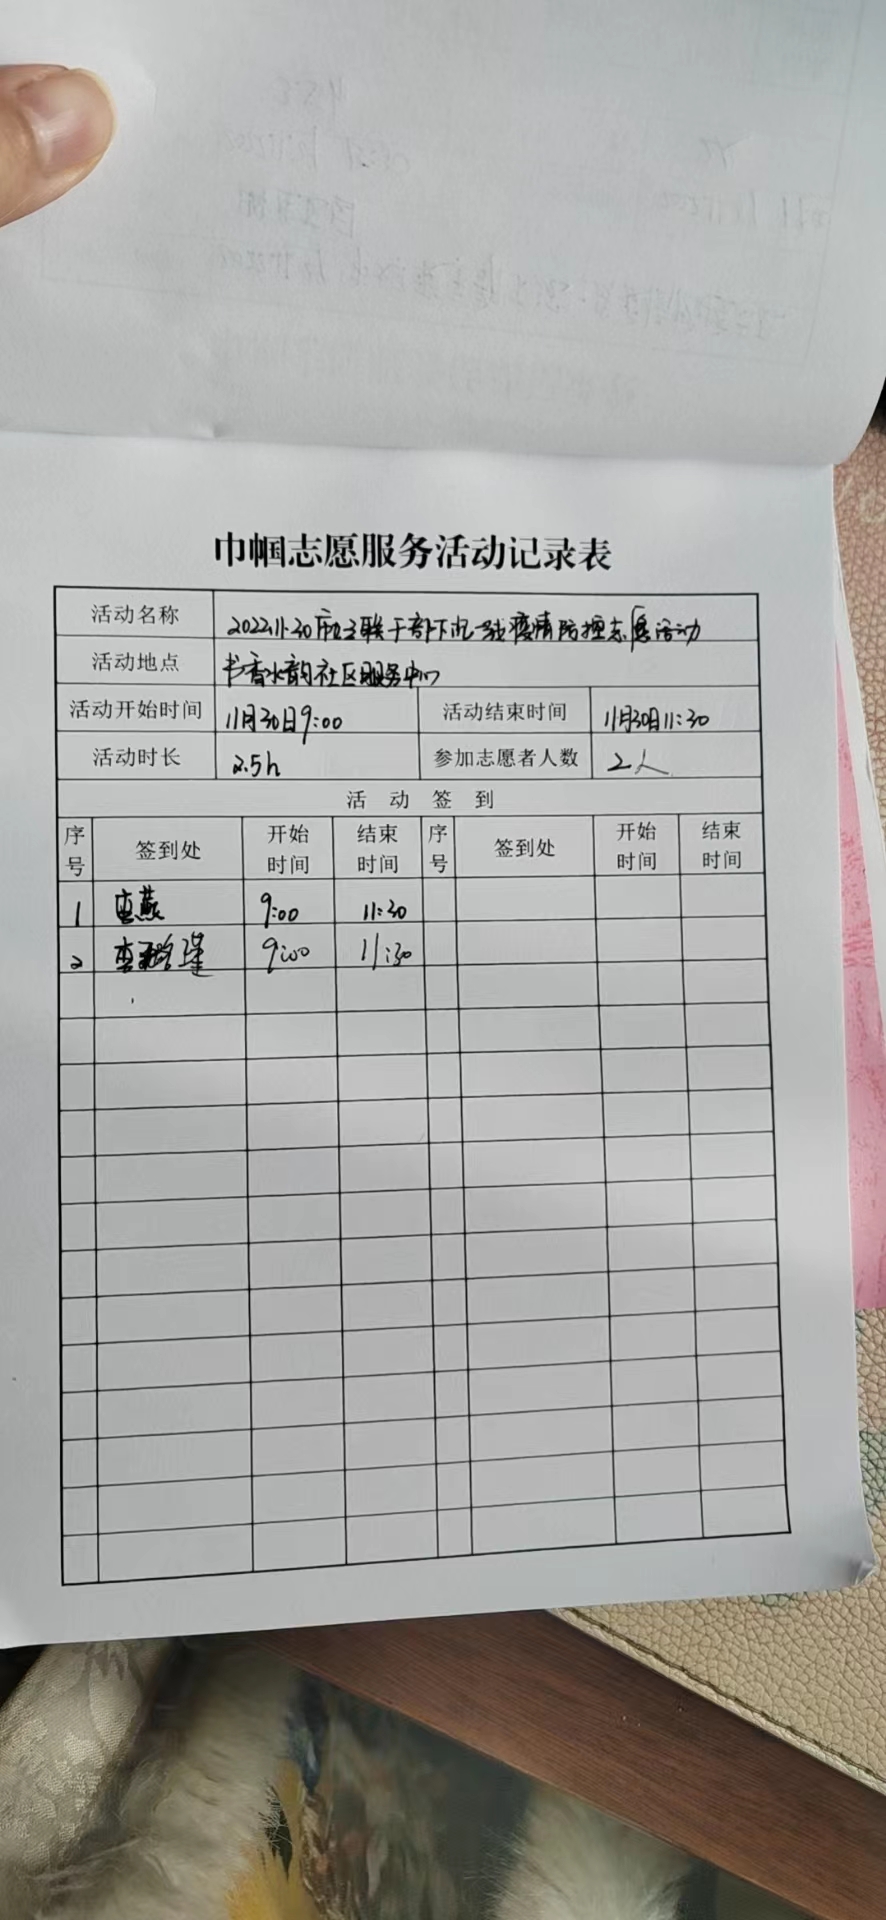 巾帼志愿服务活动记录表
活动名称 2022.11.30市妇联干部下沉一线疫情防控志愿活动
活动地点 书香水韵社区服务中心
活动开始时间 11月30日9:00 活动结束时间 11月30日11:30
活动时长 2.5h 参加志愿者人数 2人
活动签到
序号 签到处 开始时间 结束时间 序号 签到处 开始时间 结束时间
1 燕 9:00 11:30
2 李 9:00 11:30